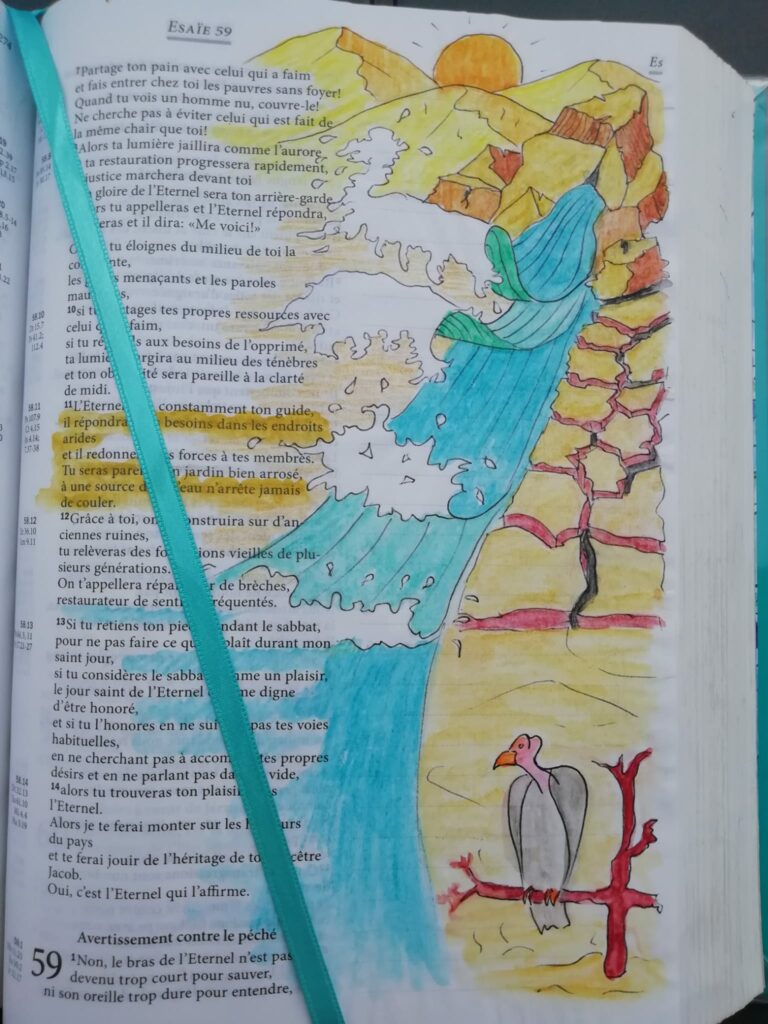 ESAÏE 59
Es
⁷Partage ton pain avec celui qui a faim
et fais entrer chez toi les pauvres sans foyer!
Quand tu vois un homme nu, couvre-le!
Ne cherche pas à éviter celui qui est fait de
la même chair que toi!
Alors ta lumière jaillira comme l'aurore,
ta restauration progressera rapidement,
justice marchera devant toi
gloire de l'Eternel sera ton arrière-garde
tu appelleras et l'Eternel répondra,
et il dira: «Me voici!»
tu éloignes du milieu de toi la
les menaçants et les paroles
58.10
¹⁰si tes propres ressources avec
celui faim,
si tu aux besoins de l'opprimé,
ta lumière au milieu des ténèbres
et ton sera pareille à la clarté
de midi.
58.11
¹¹L'Eternel constamment ton guide,
il répondra besoins dans les endroits
arides
et il redonnera forces à tes membres.
Tu seras jardin bien arrosé,
à une source n'arrête jamais
de couler.
58.12
¹²Grâce à toi, on sur d'an-
ciennes ruines,
tu relèveras des vieilles de plu-
sieurs générations.
On t'appellera de brèches,
restaurateur de fréquentés.
58.13
¹³Si tu retiens ton pendant le sabbat,
pour ne pas faire ce plaît durant mon
saint jour,
si tu considères le comme un plaisir,
le jour saint de l'Eternel digne
d'être honoré,
et si tu l'honores en ne pas tes voies
habituelles,
en ne cherchant pas à tes propres
désirs et en ne parlant pas vide,
58.14
¹⁴alors tu trouveras ton plaisir
l'Eternel.
Alors je te ferai monter sur les
du pays
et te ferai jouir de l'héritage de
Jacob.
Oui, c'est l'Eternel qui l'affirme.
Avertissement contre le péché
59 ¹Non, le bras de l'Eternel n'est pas
devenu trop court pour sauver,
ni son oreille trop dure pour entendre,